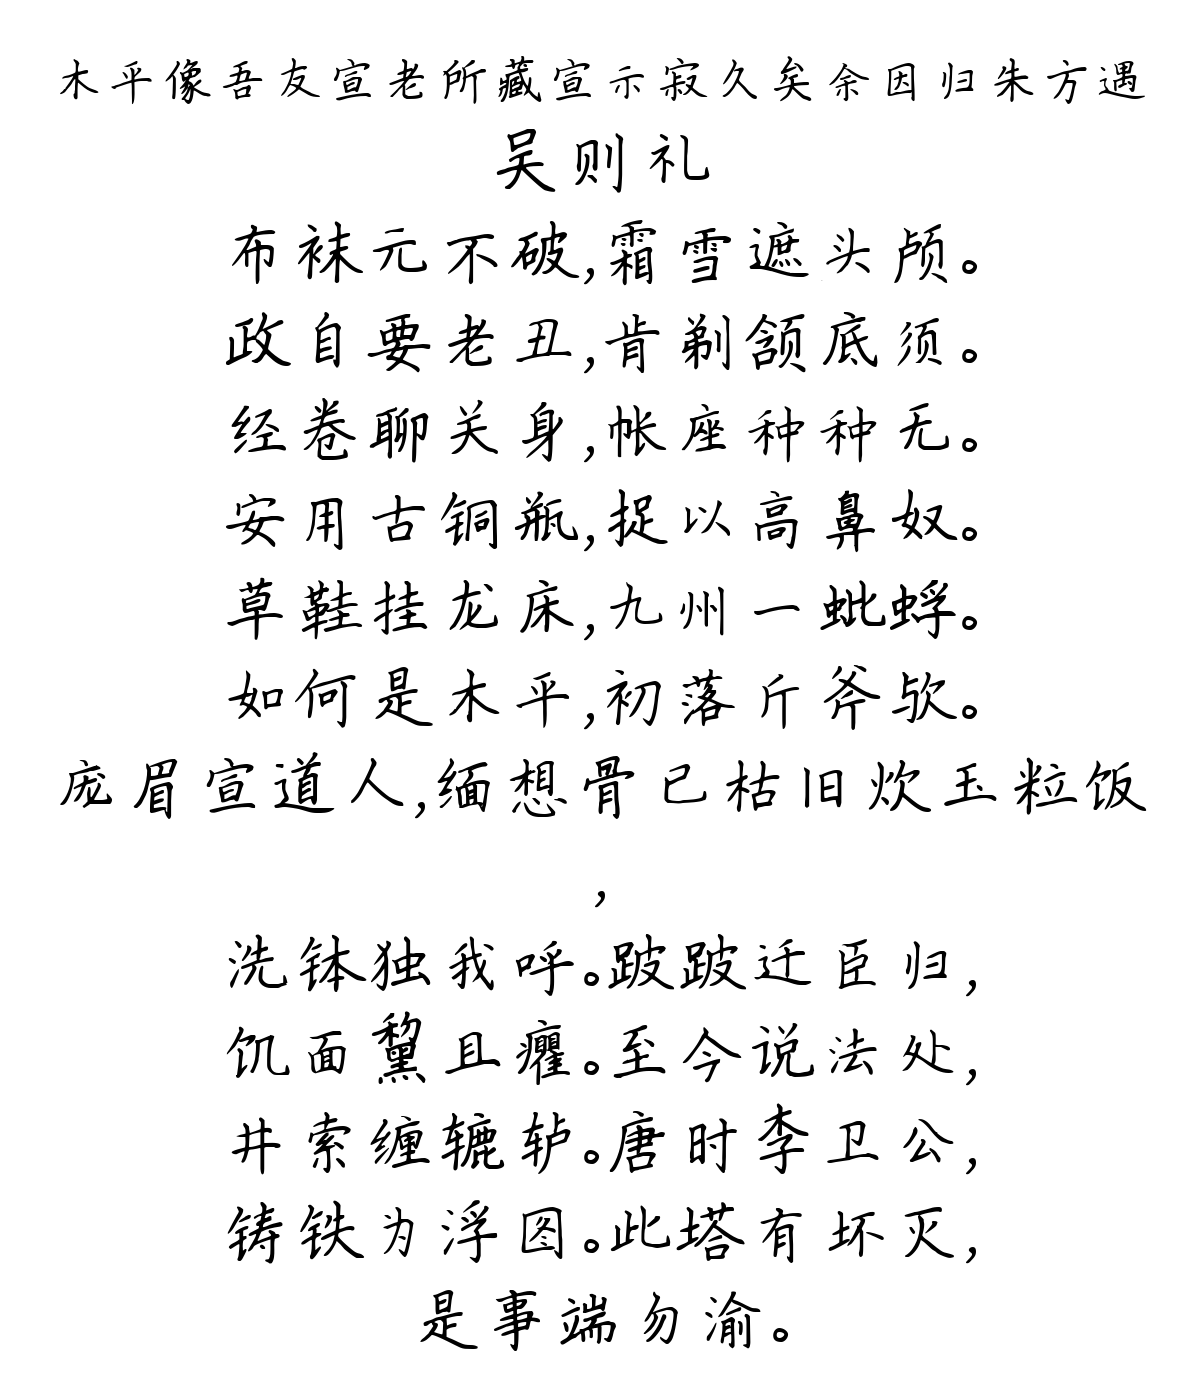 木平像吾友宣老所藏宣示寂久矣余因归朱方遇
吴则礼
布袜元不破,霜雪遮头颅。
政自要老丑,肯剃颔底须。
经卷聊关身,帐座种种无。
安用古铜瓶,捉以高鼻奴。
草鞋挂龙床,九州一蚍蜉。
如何是木平,初落斤斧欤。
庞眉宣道人,缅想骨已枯旧炊玉粒饭
,
洗钵独我呼。跛跛迁臣归,
饥面黧且癯。至今说法处,
井索缠辘轳。唐时李卫公,
铸铁为浮图。此塔有坏灭,
是事端勿渝。